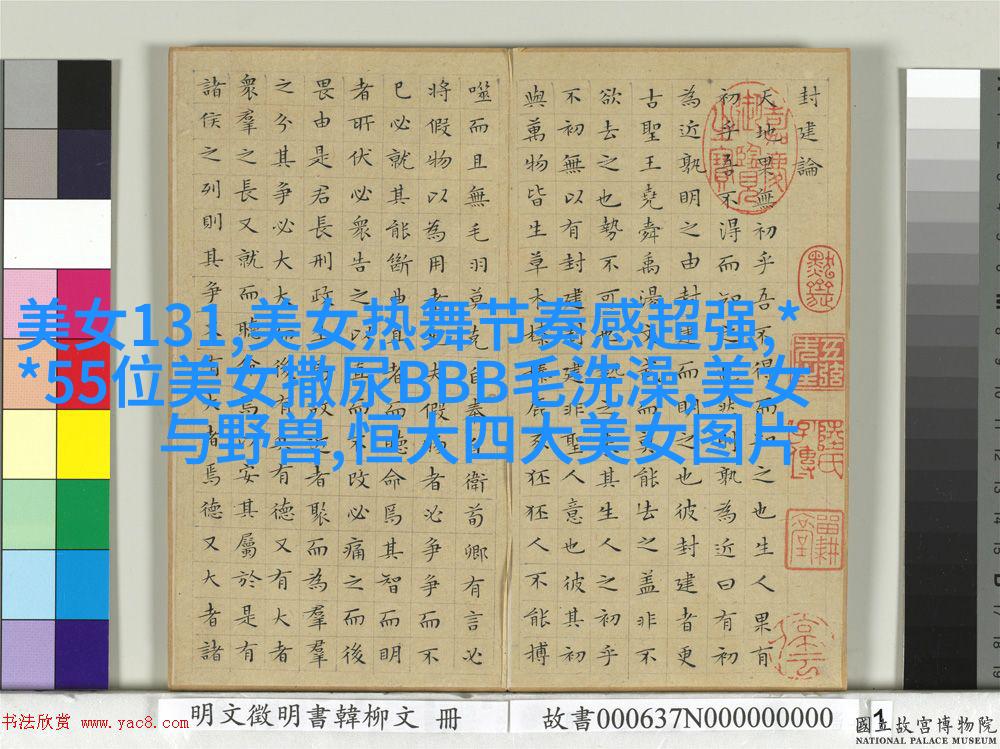 美女131,美女热舞节奏感超强,*
*55位美女撒尿BBB毛洗澡,美女
与野兽,恒大四大美女图片
封建論
天地果無初乎吾不得而知之也生人果有
初乎吾不得而知之也然則孰為近曰有初
為近孰明之由封建而明之也彼封建者更
古聖王堯舜禹湯文武而莫能去之蓋非不
欲去之也勢不可也勢之來其生人之初乎
不初無以有封建封建非聖人意也彼其初
與萬物皆生草木榛榛鹿豕狉狉人不能搏
噬而且無毛羽莫克自奉自衛荀卿有言必
將假物以為用者也夫假物者必爭爭而不
已必就其能斷曲直者而聽命焉其智而明
者所伏必衆告之以直而不改必痛之而後
畏由是君長刑政生焉故近者聚而為羣
之分其爭必大大而後有兵有德又有大者
衆羣之長又就而聽命焉以安其屬於是有
諸侯之列則其爭又有大者焉德又大者諸
明文徵明書韓柳文 冊
故書000637N000000000
1
國立故宮博物院
NATIONAL PALACE MUSEUM
书法欣赏 www.yac8.com